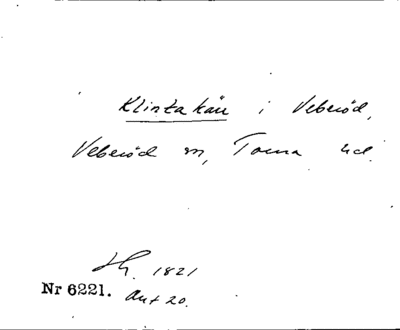 Klintakärr i Veberöd,
Veberöd sn, Torna hd.
1821
Nr 6221. Ant 20.